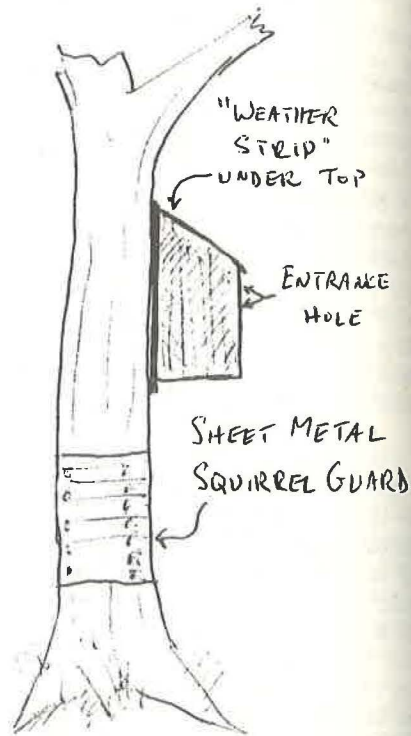 "WEATHER
STRIP"
UNDER TOP
ENTRANCE
HOLE
SHEET METAL
SQUIRREL GUARD